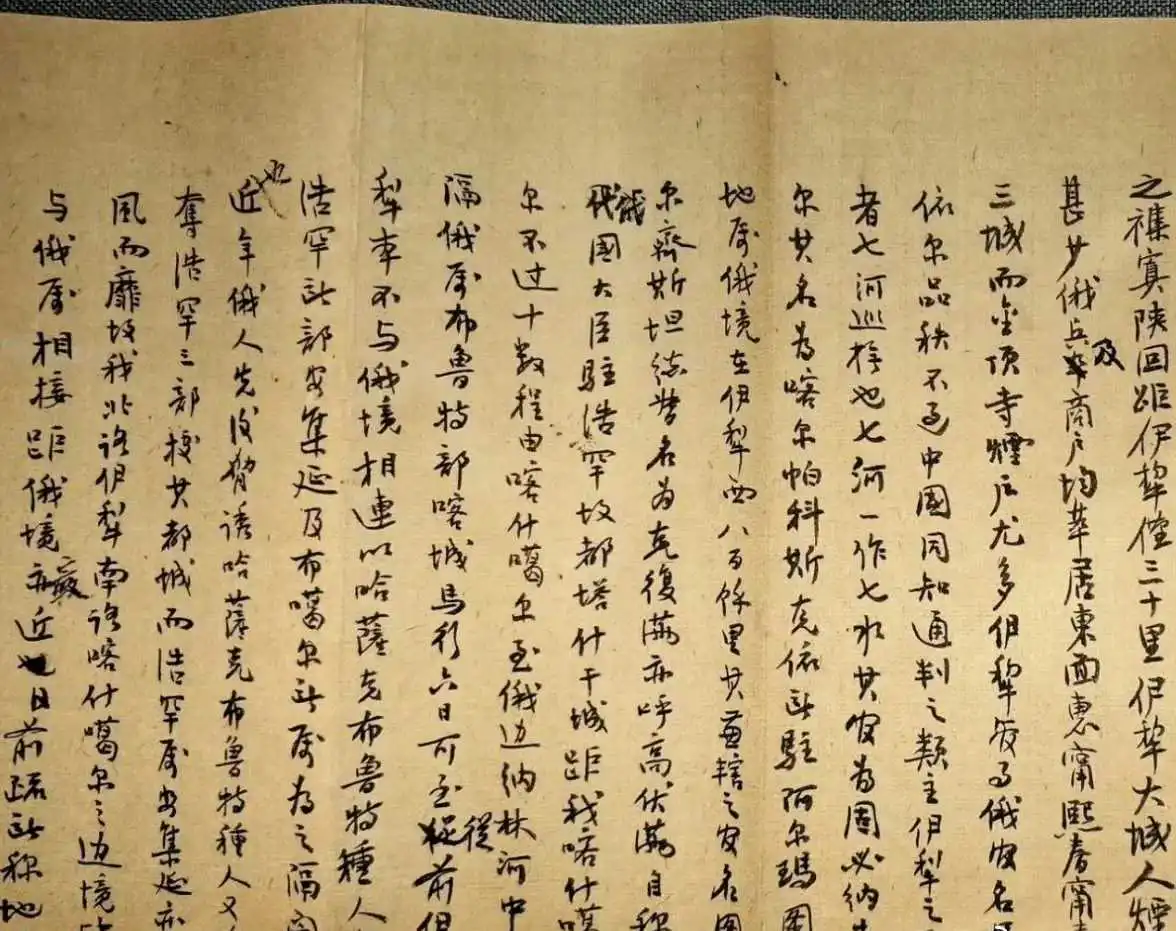 之襍寞陕回距伊犂僅三十里伊犂大城人煙
甚少俄兵及商户均萃居東面惠甯熙春甯
三城而金顶寺煙户尤多伊犂办事俄官名
依尔品秩不过中國同知通判之類主伊犂之
者七河巡撫也七河一作七水其官为固必纳
尔其名为喀尔帕科斯克依駐阿尔瑪圖
地属俄境在伊犂西八百馀里其兼轄之官名图
尔齋斯坦总督名为克復满亦呼高伏满自称
能代國大臣駐浩罕故都塔什干城距我喀什噶
尔不过十数程由喀什噶尔至俄边纳林河中
隔俄属布鲁特部喀城马行六日可至從前伊
犂本不与俄境相連以哈薩克布鲁特種人
浩罕部安集延及布噶尔属为之隔
也近年俄人先後胁誘哈薩克布鲁特種人又
奪浩罕三部按其都城而浩罕属安集延亦
風而靡故我北路伊犂南路喀什噶尔之边境
与俄属相接距俄境亦近日前疏称地